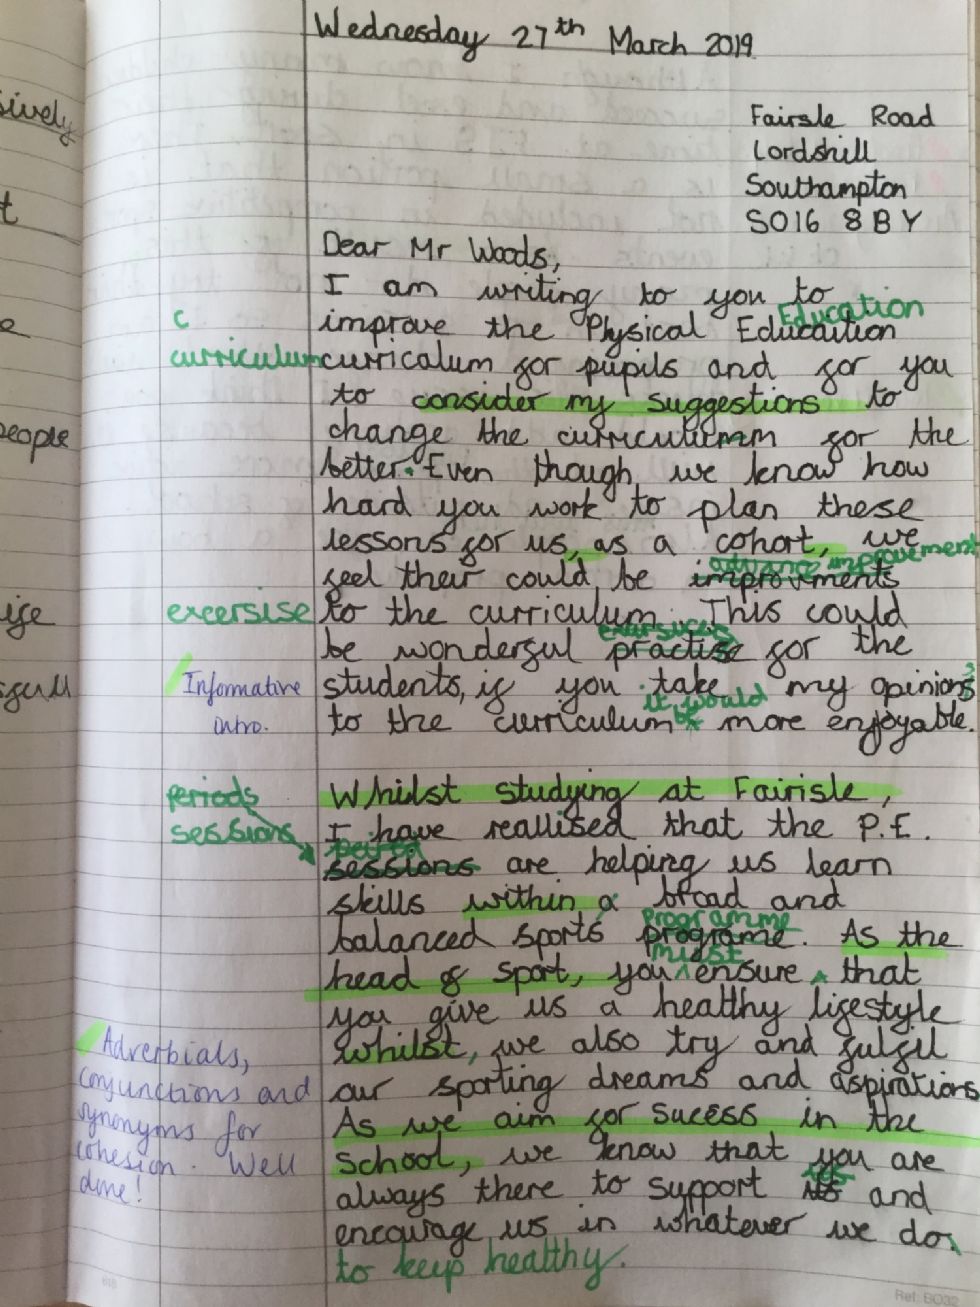 Wednesday 27th March 2019
sively
Fairsle Road
Lordshill
Southampton
SO16 8BY
Dear Mr Woods,
I am writing to you to
Education
c
improve the Physical Educaition
curriculum
curricalum for pupils and for you
to consider my suggestions to
people
change the for the
better. Even though we know how
hard you work to plan these
lessons for us, as a cohort, we
improvement
feel their could be improvments
excersise
to the curriculum. This could
be wonderful practise for the
Informative
intro.
students, if you take my opinions
it would
be
to the curriculum more enjoyable.
periods
sessions
Whilst studying at Fairisle,
I have reallised that the P.E.
sessions are helping us learn
skills within a broad and
Programme
balanced sports programe. As the
must
head of sport, you ensure that
you give us a healthy lifestyle
Adverbials,
conjunctions and
synonyms for
cohesion. Well
done!
whilst, we also try and fulfil
our sporting dreams and aspirations
As we aim for sucess in the
school, we know that you are
always there to support us and
encourage us in whatever we do,
to keep healthy.
Ref: BO32